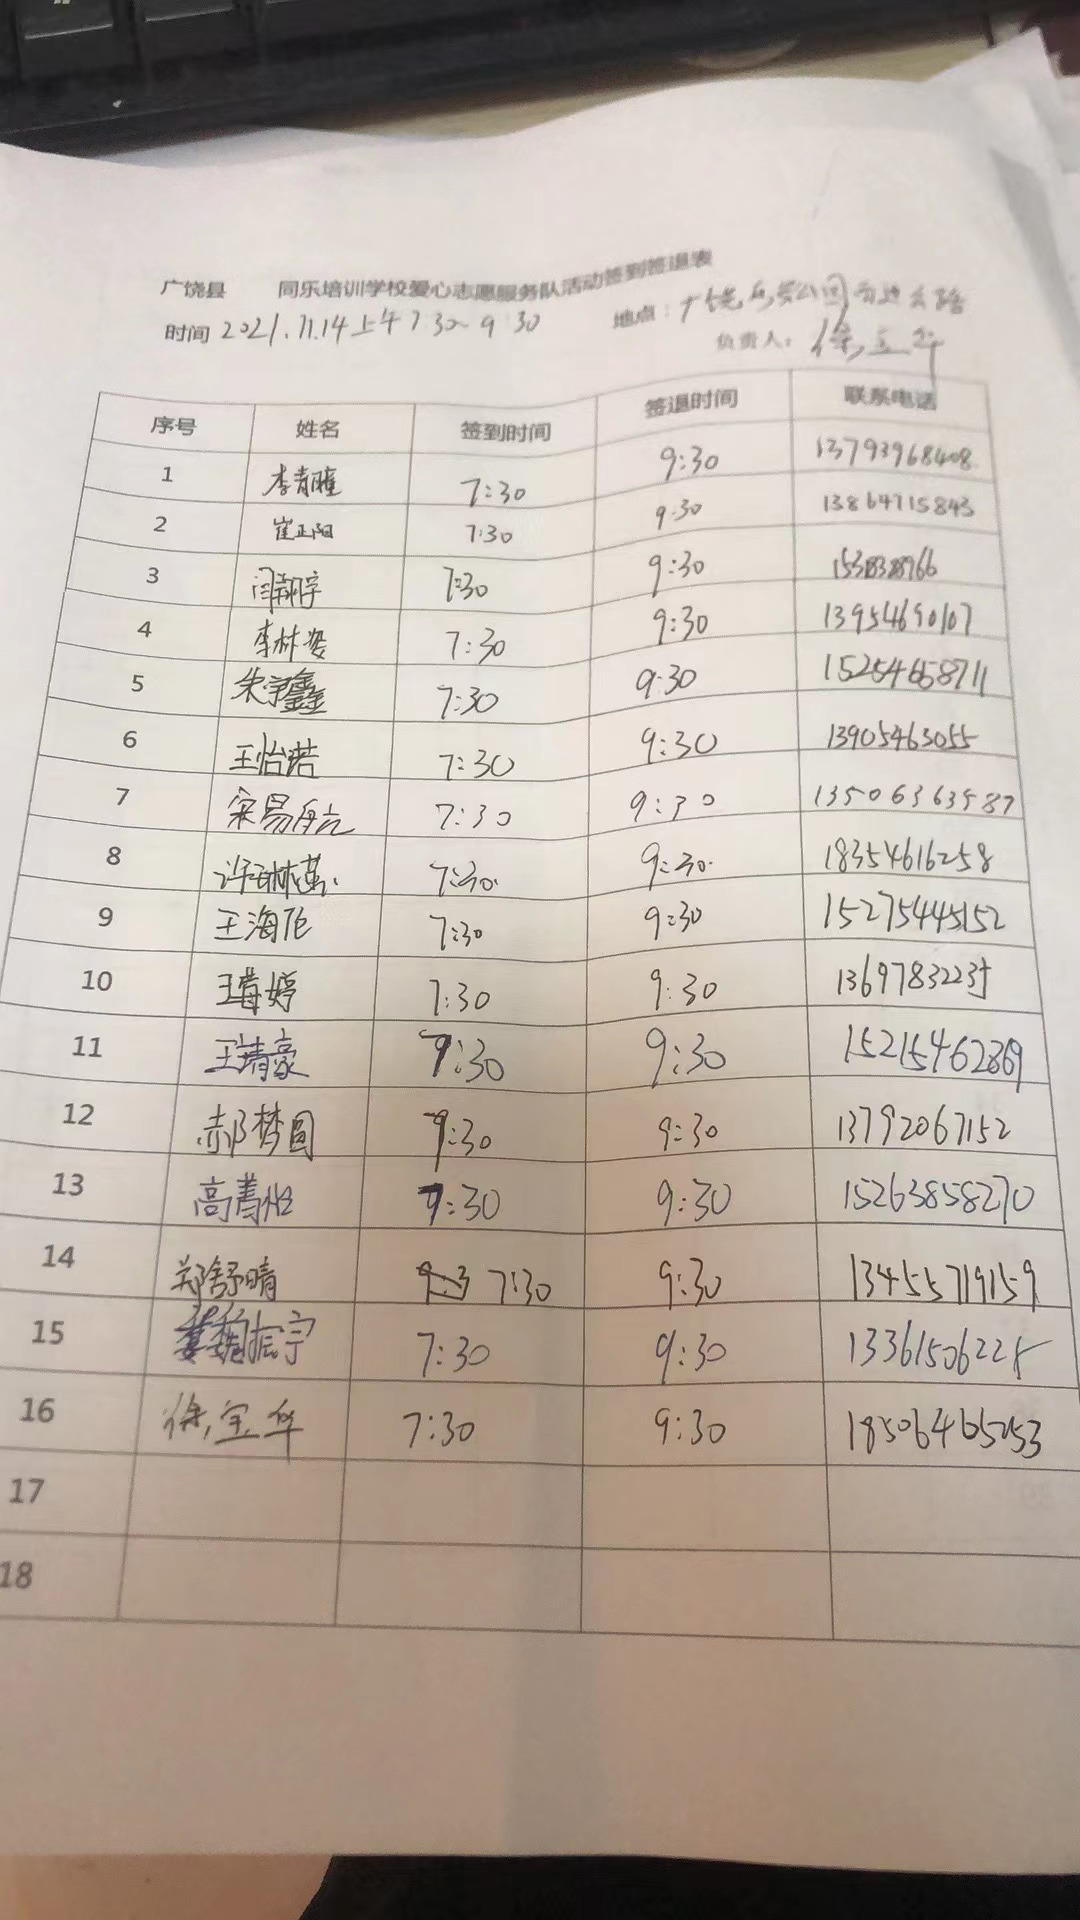 广饶县 同乐培训学校爱心志愿服务队活动签到签退表
时间 2021.11.14上午7:30~9:30 地点：广饶
负责人：徐宝华
序号 姓名 签到时间 签退时间 联系电话
1 李青瞳 7:30 9:30 13793968408
2 崔正阳 7:30 9:30 13864715843
3 闫翔宇 7:30 9:30
4 李林姿 7:30 9:30 13954690107
5 朱宇鑫 7:30 9:30 15254658711
6 王怡诺 7:30 9:30 13905463055
7 宋易航 7:30 9:30 13506363587
8 许琳 7:30 9:30 18354616258
9 王海 7:30 9:30 15275445152
10 王 婷 7:30 9:30
11 王靖豪 7:30 9:30 15215462869
12 郝梦圆 7:30 9:30 13792067152
13 高菁 7:30 9:30 15263858270
14 郑舒晴 7:30 9:30 13455719159
15 魏振宁 7:30 9:30
16 徐宝华 7:30 9:30 18506465253
17
18